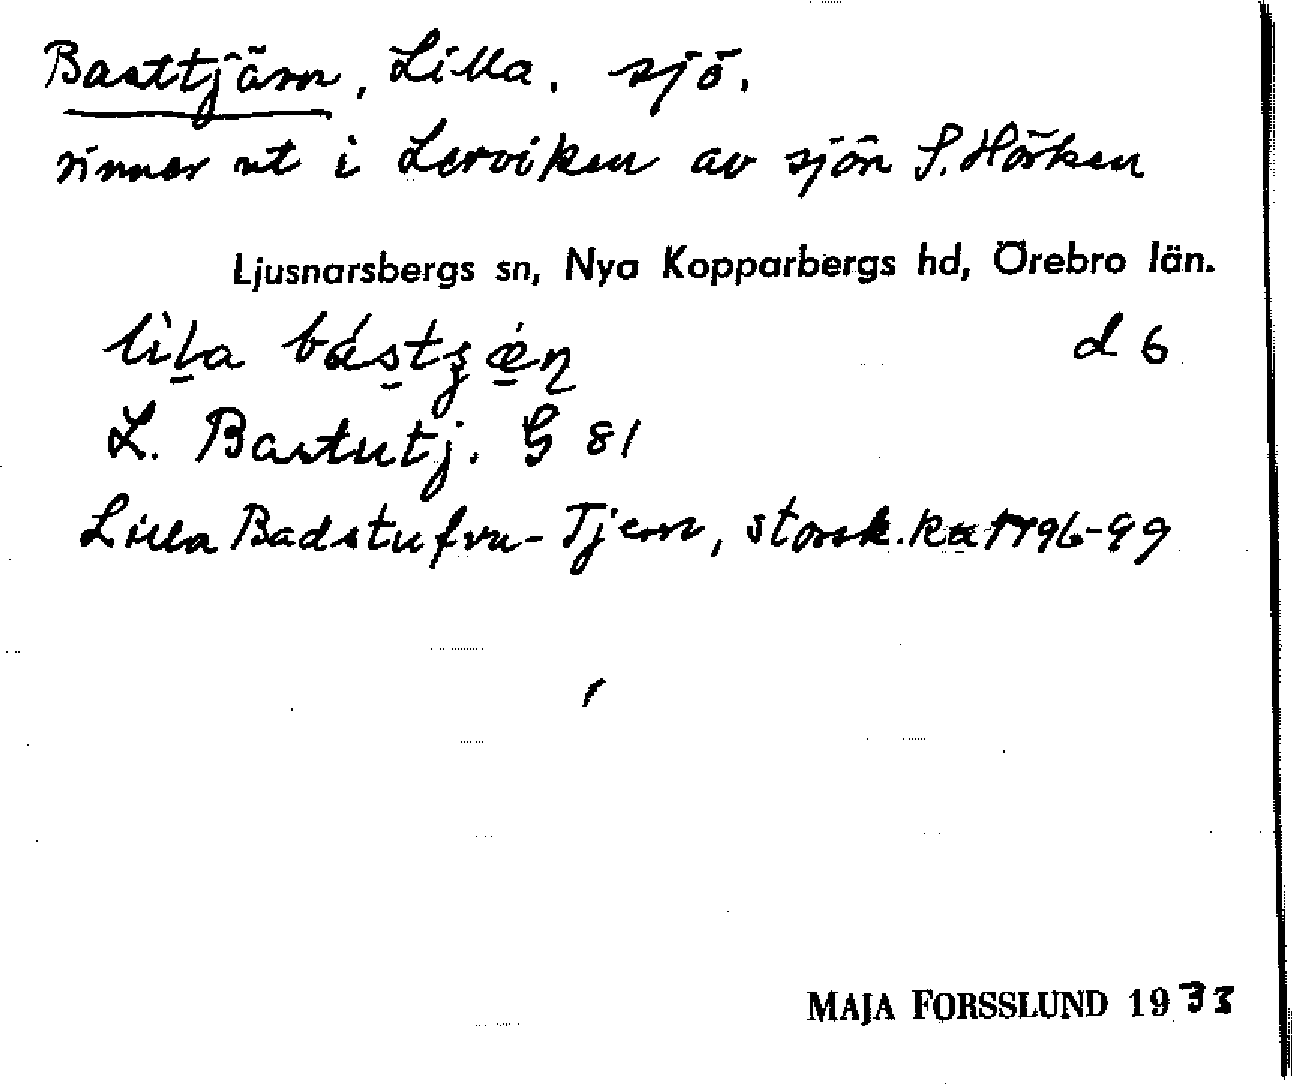 Basttjärn, Lilla. sjö.
rinner ut i Lerviken av sjön S. Hörken
Ljusnarsbergs sn, Nya Kopparbergs hd, Örebro län.
d 6
L. Bastutj. G 81
Lilla Badstufvu-Tjern, storsk.ka 1796-99
MAJA FORSSLUND 1933